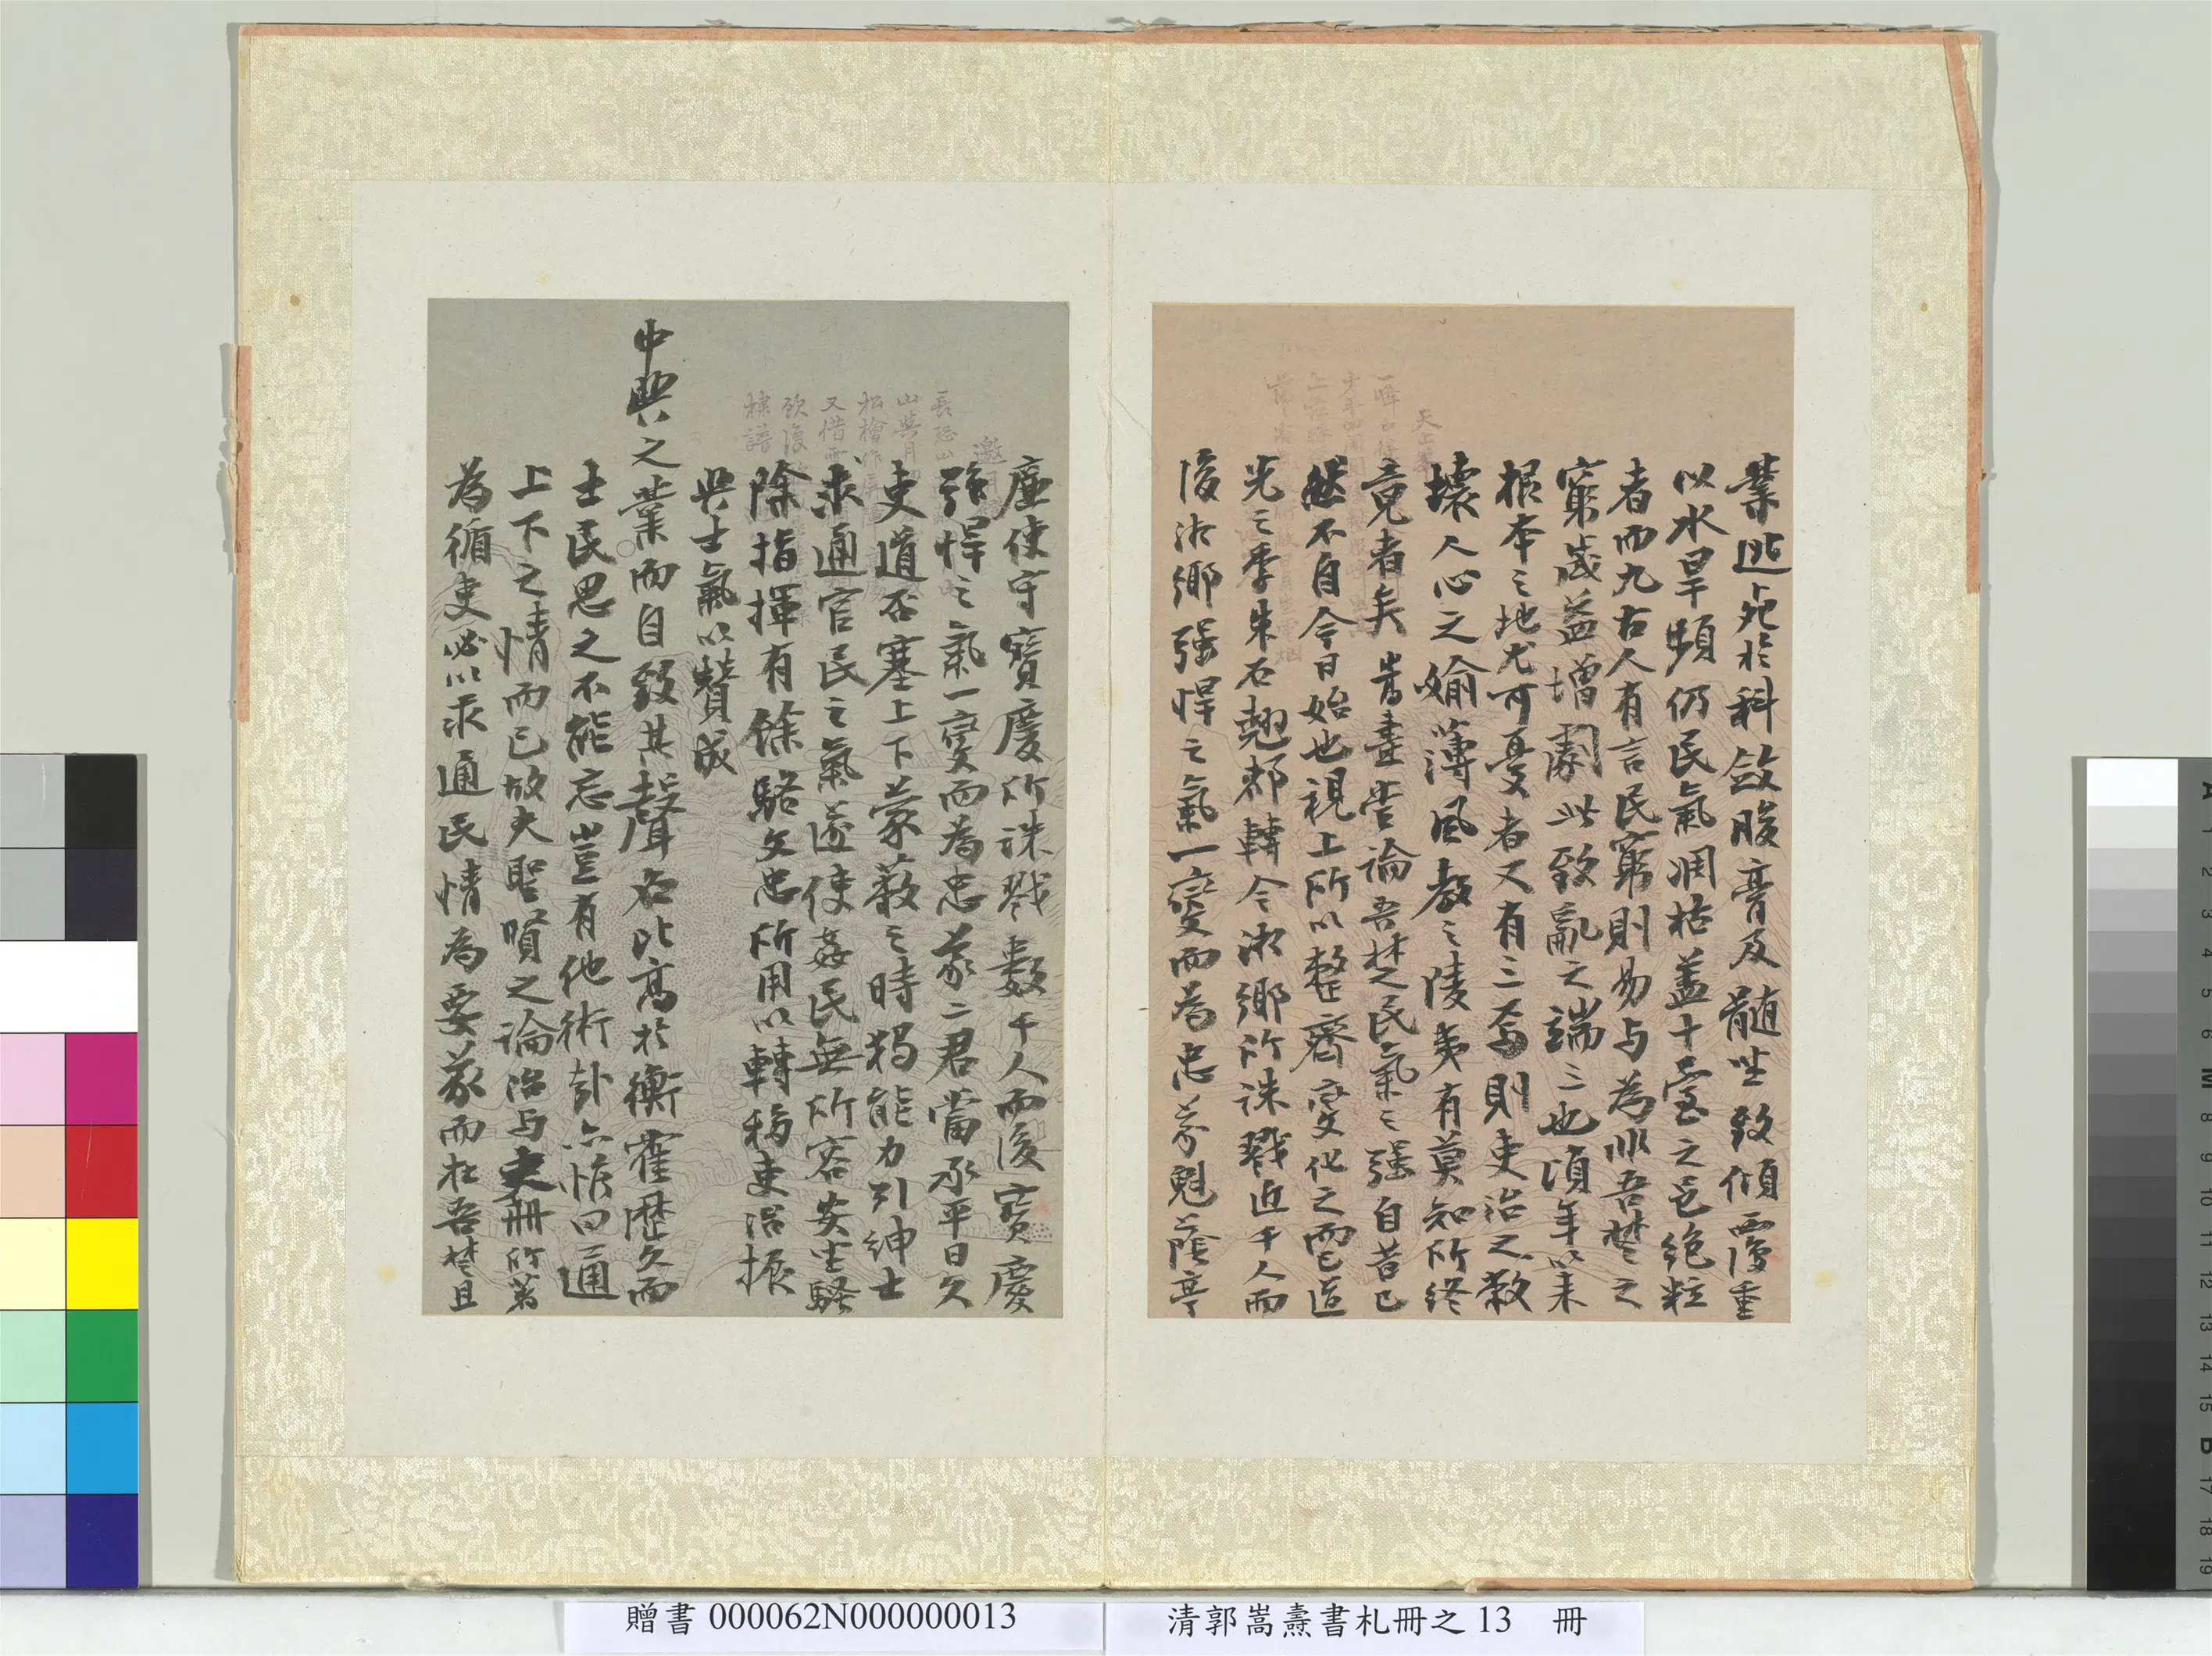 業逃死於科斂朘膏及髓坐致傾覆重
以水旱頻仍民氣凋枯蓋十室之邑絕粒
者而九右人有言民窮則易与為非吾楚之
窮歲益增劇此致亂之端三也頃年以來
根本之地尤可憂者又有三焉則吏治之敝
壞人心之媮薄風教之陵夷有莫知所終
竟者矣嵩燾嘗論吾楚民氣之強自昔已
然不自今日始也視上所以整齊變化之而已道
光之季朱石翹郡轉令湘鄉所誅戮近千人而
後湘鄉強悍之氣一變而為忠義魁蔭亭
塵使守寶慶所誅戮數千人而後寶慶
強悍之氣一變而為忠義二君當承平日久
吏道否塞上下蒙蔽之時獨能力引紳士
求通官民之氣遂使姦民無所容安坐騷
除指揮有餘駱文忠所用以轉移吏治振
興士氣以贊成
中興之業而自致其聲名比高於衡霍歷久而
士民思之不能忘豈有他術哉亦惟曰通
上下之情而已故夫聖賢之論治与史冊所著
為循吏必以求通民情為要義而在吾楚且
贈書 000062N000000013
清郭嵩燾書札冊之 13 冊